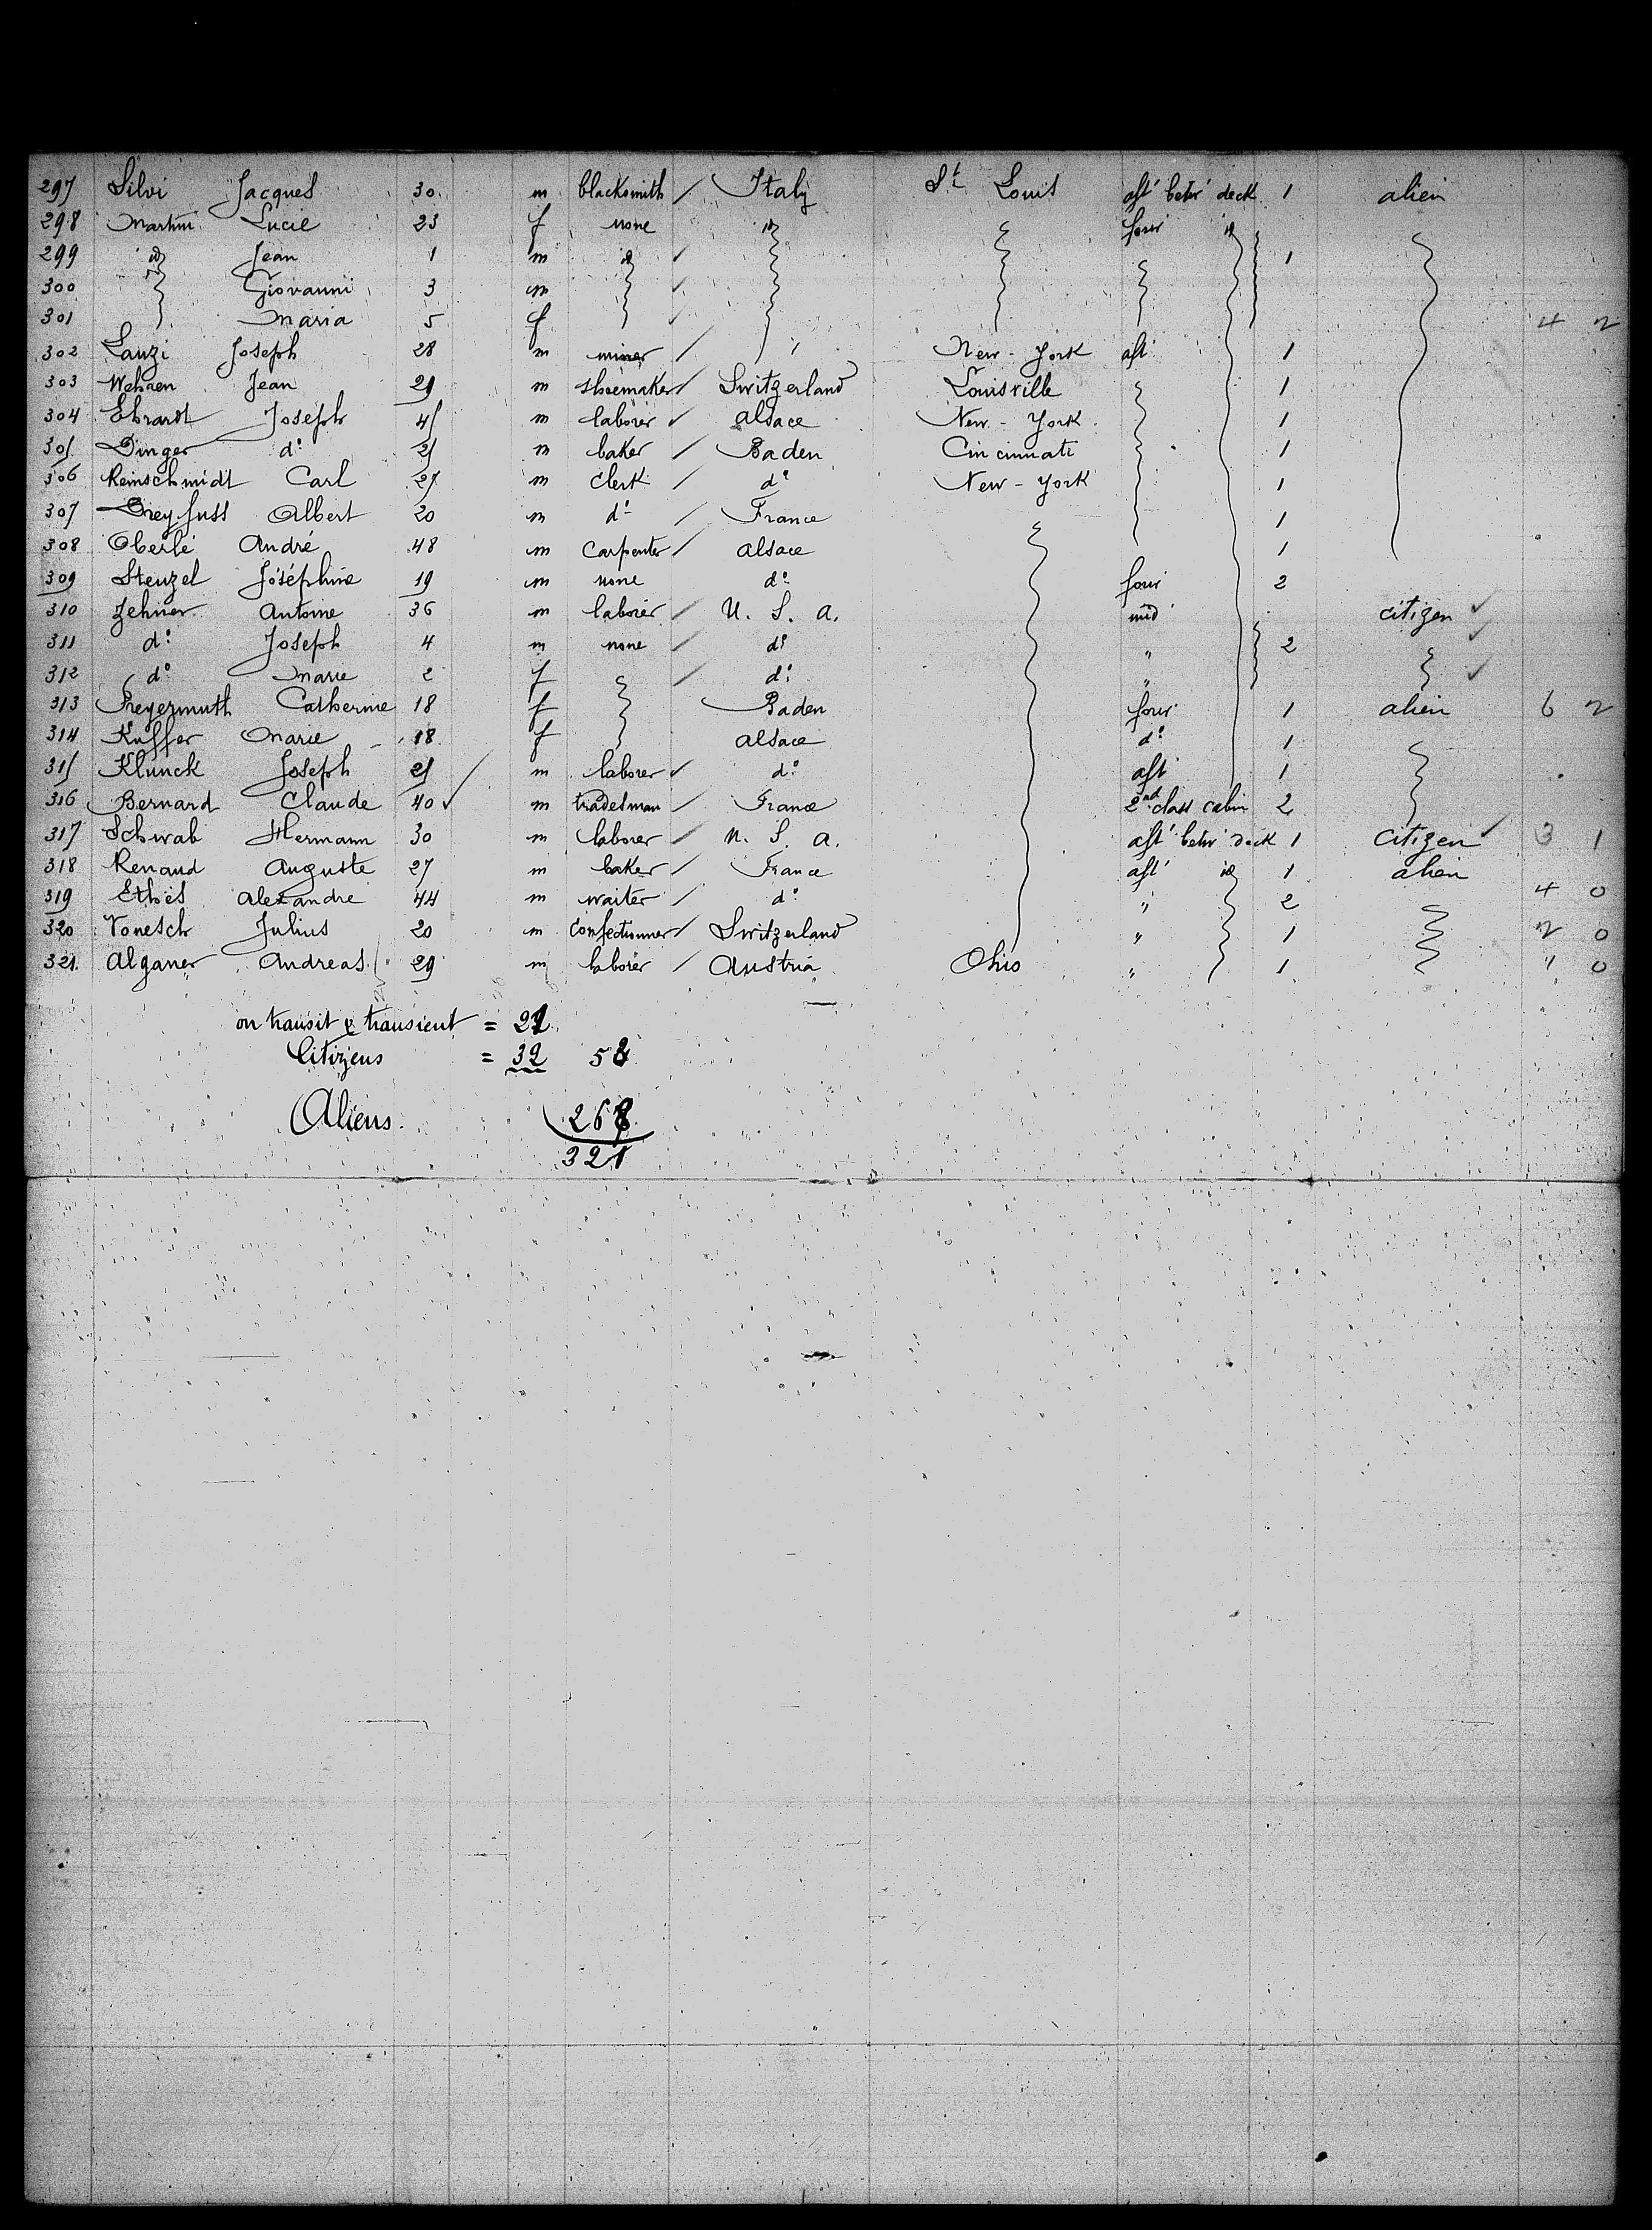 297 Silvi Jacques 30 m blacksmith / Italy St Louis aft' betw' deck 1 alien
298 Martini Lucie 23 f none id four id
299 id Jean 1 m id 1
300 Giovanni 3 m
301 Maria 5 f 4 2
302 Lanzi Joseph 28 m miner / New-York aft 1
303 Wehren Jean 29 m shoemaker / Switzerland Louisville 1
304 Ehrardt Joseph 45 m laborer Alsace New-York 1
305 Dinger do 25 m baker / Baden Cincinnati 1
306 Reinschmidt Carl 27 m clerk / do New-York 1
307 Dreyfuss Albert 20 m do / France 1
308 Oberlé André 48 m carpenter / Alsace 1
309 Stenzel Joséphine 19 m none do four 2
310 Zehner Antoine 36 m laborer / U. S. A. mid citizen
311 do Joseph 4 m none / do " 2
312 do Marie 2 f / do "
313 Freyermuth Catherine 18 f Baden four 1 alien 6 2
314 Kuffer Marie 18 f Alsace do 1
315 Klunck Joseph 25 m laborer do aft 1
316 Bernard Claude 40 m tradesman / France 2nd class cabin 2
317 Schwab Hermann 30 m laborer / U. S. A. aft' betw' deck 1 citizen 3 1
318 Renaud Auguste 27 m baker / France aft' id 1 alien
319 Ethès Alexandre 44 m waiter / do " 2 4 0
320 Vonesch Julius 20 m confectionner / Switzerland " 1 2 0
321. Alganer Andreas 29 m laborer / Austria Ohio " 1 1 0
on transit & transient = 21
Citizens = 32 53
Aliens 268
321